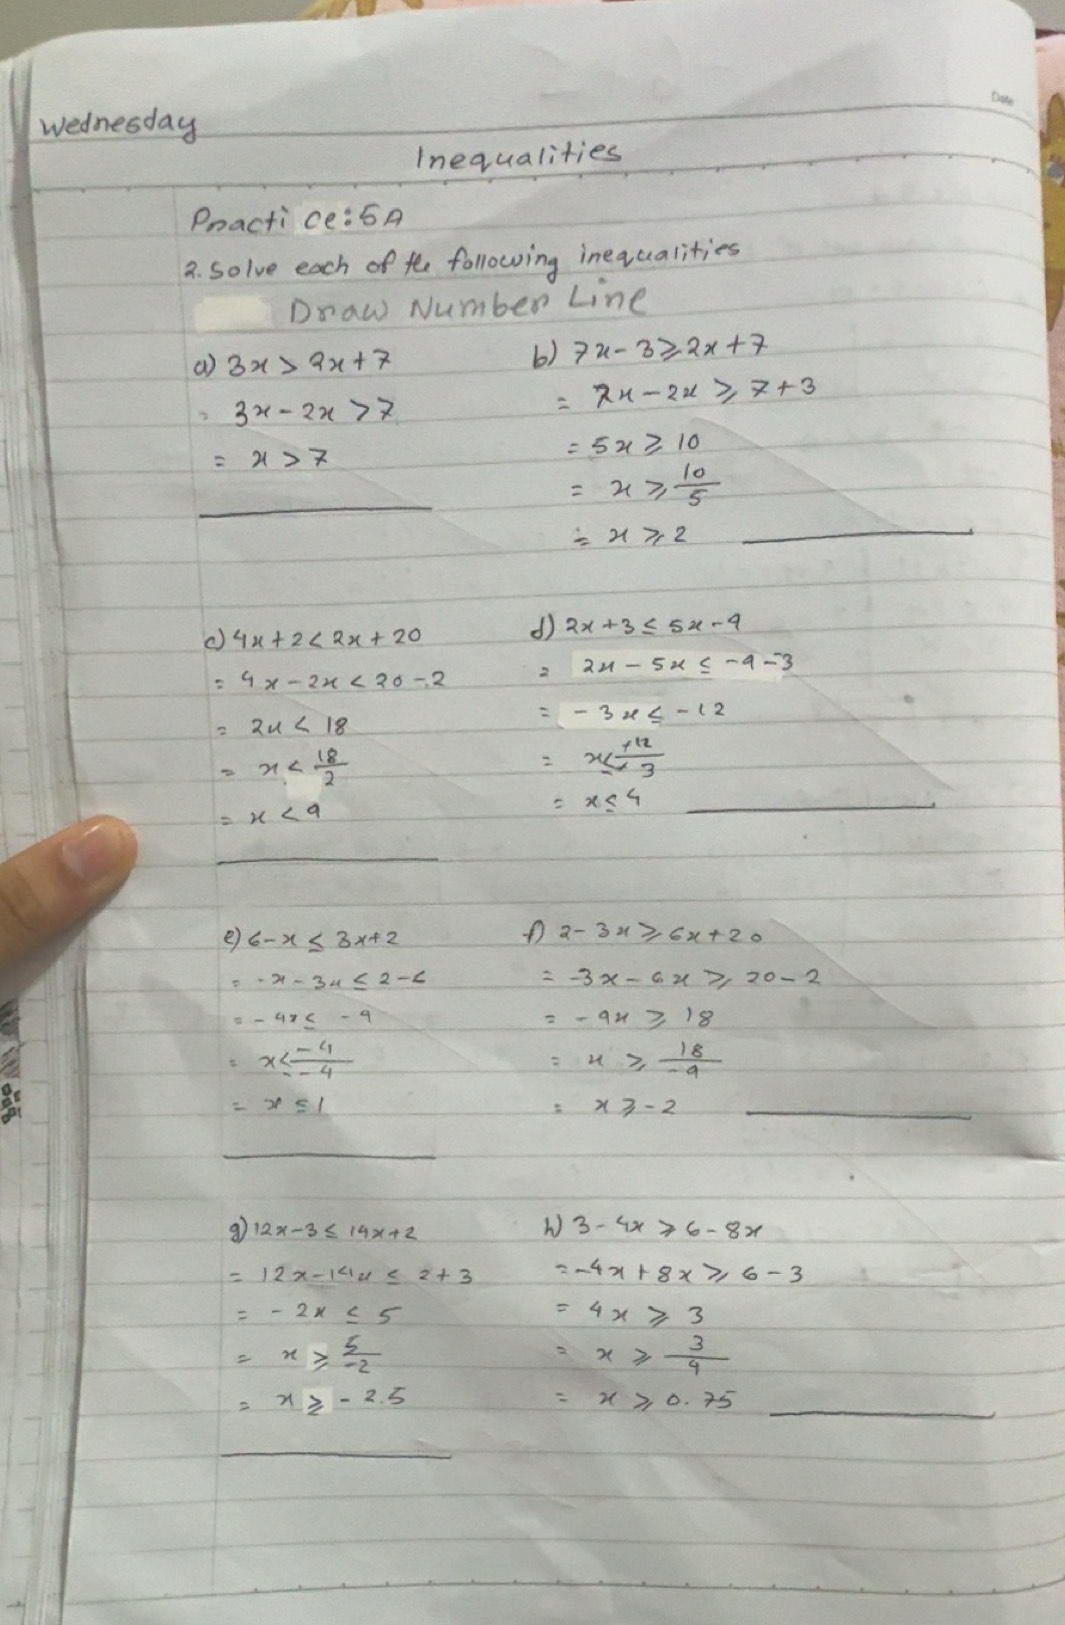 Date
Wednesday
Inequalities
Practi ce:5A
2. Solve each of the following inequalities
Draw Number Line
a) 3x > 2x + 7
= 3x - 2x > 7
= x > 7
b) 7x - 3 ⩾ 2x + 7
= 7x - 2x ⩾ 7 + 3
= 5x ⩾ 10
= x ⩾ 10/5
= x ⩾ 2
c) 4x + 2 < 2x + 20
= 4x - 2x < 20 - 2
= 2x < 18
= x < 18/2
= x < 9
d) 2x + 3 ≤ 5x - 9
= 2x - 5x ≤ -9 - 3
= - 3x ≤ - 12
= x ≤ +12/+3
= x ≤ 4
e) 6 - x ≤ 3x + 2
= -x - 3x ≤ 2 - 6
= - 4x ≤ - 4
= x ≤ -4/-4
= x ≤ 1
f) 2 - 3x ⩾ 6x + 20
= -3x - 6x ⩾ 20 - 2
= - 9x ⩾ 18
= x ⩾ 18/-9
= x ⩾ -2
g) 12x - 3 ≤ 14x + 2
= 12x - 14x ≤ 2 + 3
= - 2x ≤ 5
= x ⩾ 5/-2
= x ⩾ - 2.5
h) 3 - 4x ⩾ 6 - 8x
= -4x + 8x ⩾ 6 - 3
= 4x ⩾ 3
= x ⩾ 3/4
= x ⩾ 0.75